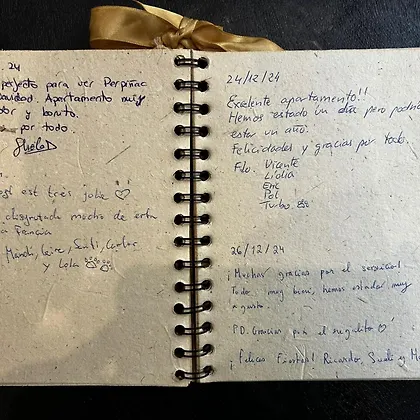 24
perfecto para ver Perpiñac
Apartamento muy
por todo.
est très jolie ♡
disfrutado mucho de esta
Francia
y Lola
24/12/24
Excelente apartamento!!
Hemos estado un día pero podría
estar un año.
Felicidades y gracias por todo.
Fdo. Vicente
Lidia
Eric
Pol
Turbo
26/12/24
¡Muchas gracias por el servicio!
Todo muy bien, hemos estado muy
a gusto.
P.D. Gracias por el regalito ♡
¡Felices Fiestas! Ricardo, Sueli y